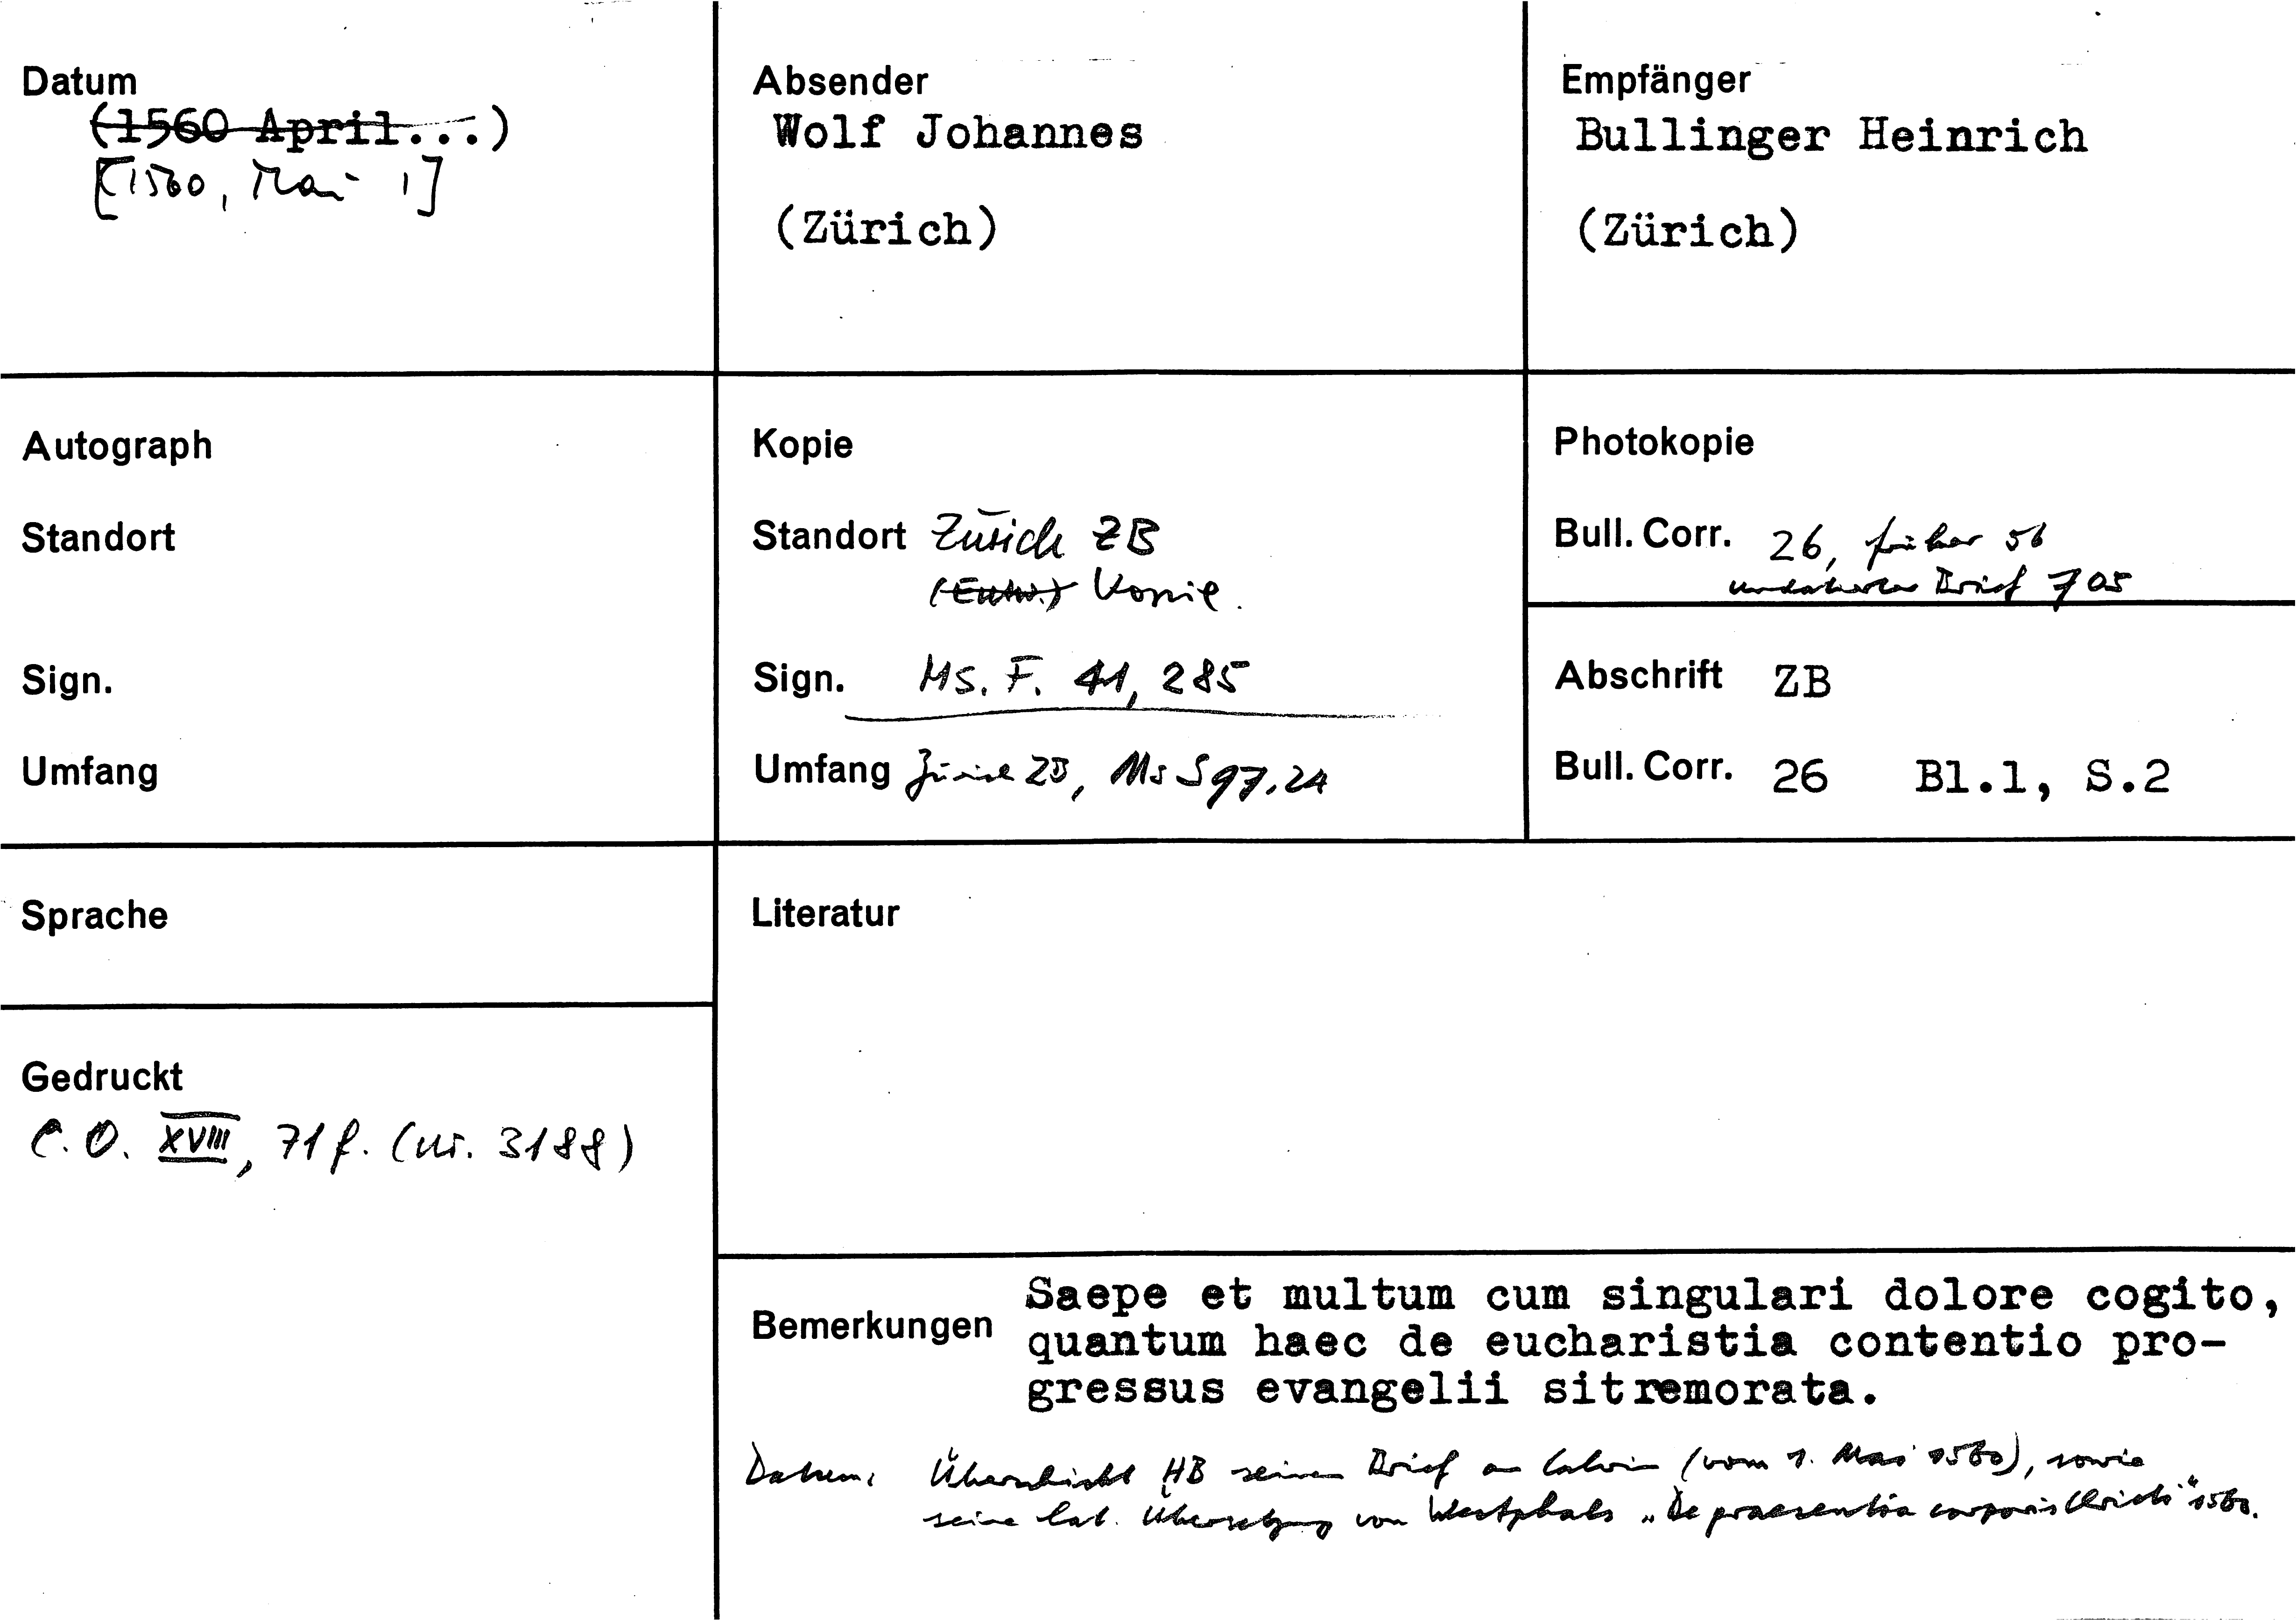 Datum
(1560 April...)
[1560, Mai 1]
Absender
Wolf Johannes
(Zürich)
Empfänger
Bullinger Heinrich
(Zürich)
Autograph
Standort
Sign.
Umfang
Kopie
Standort Zürich ZB
(Entw.) Kopie.
Sign. Ms. F. 41, 285
Umfang Zürich ZB, Ms S 97, 24
Photokopie
Bull. Corr. 26, früher 56
undatierter Brief 705
Abschrift ZB
Bull. Corr. 26 Bl.1, S.2
Sprache
Literatur
Gedruckt
C. O. XVIII, 71 f. (nr. 3188)
Bemerkungen
Saepe et multum cum singulari dolore cogito,
quantum haec de eucharistia contentio pro-
gressus evangelii sit remorata.
Datum: Überschickt HB seinen Brief an Calvin (vom 1. Mai 1560), sowie
seine lat. Übersetzung von Westphals "De praesentia corporis Christi" 1560.